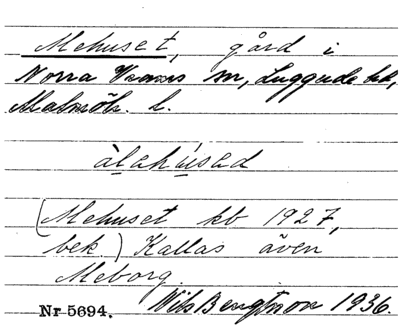 Mehuset, gård i
Norra Vrams sn, Luggude hd,
Malmöh. l.
àlahúsad
(Mehuset kb 1927,
bek.) Kallas även
Meborg
Nr 5694. Nils Bengtsson 1936.